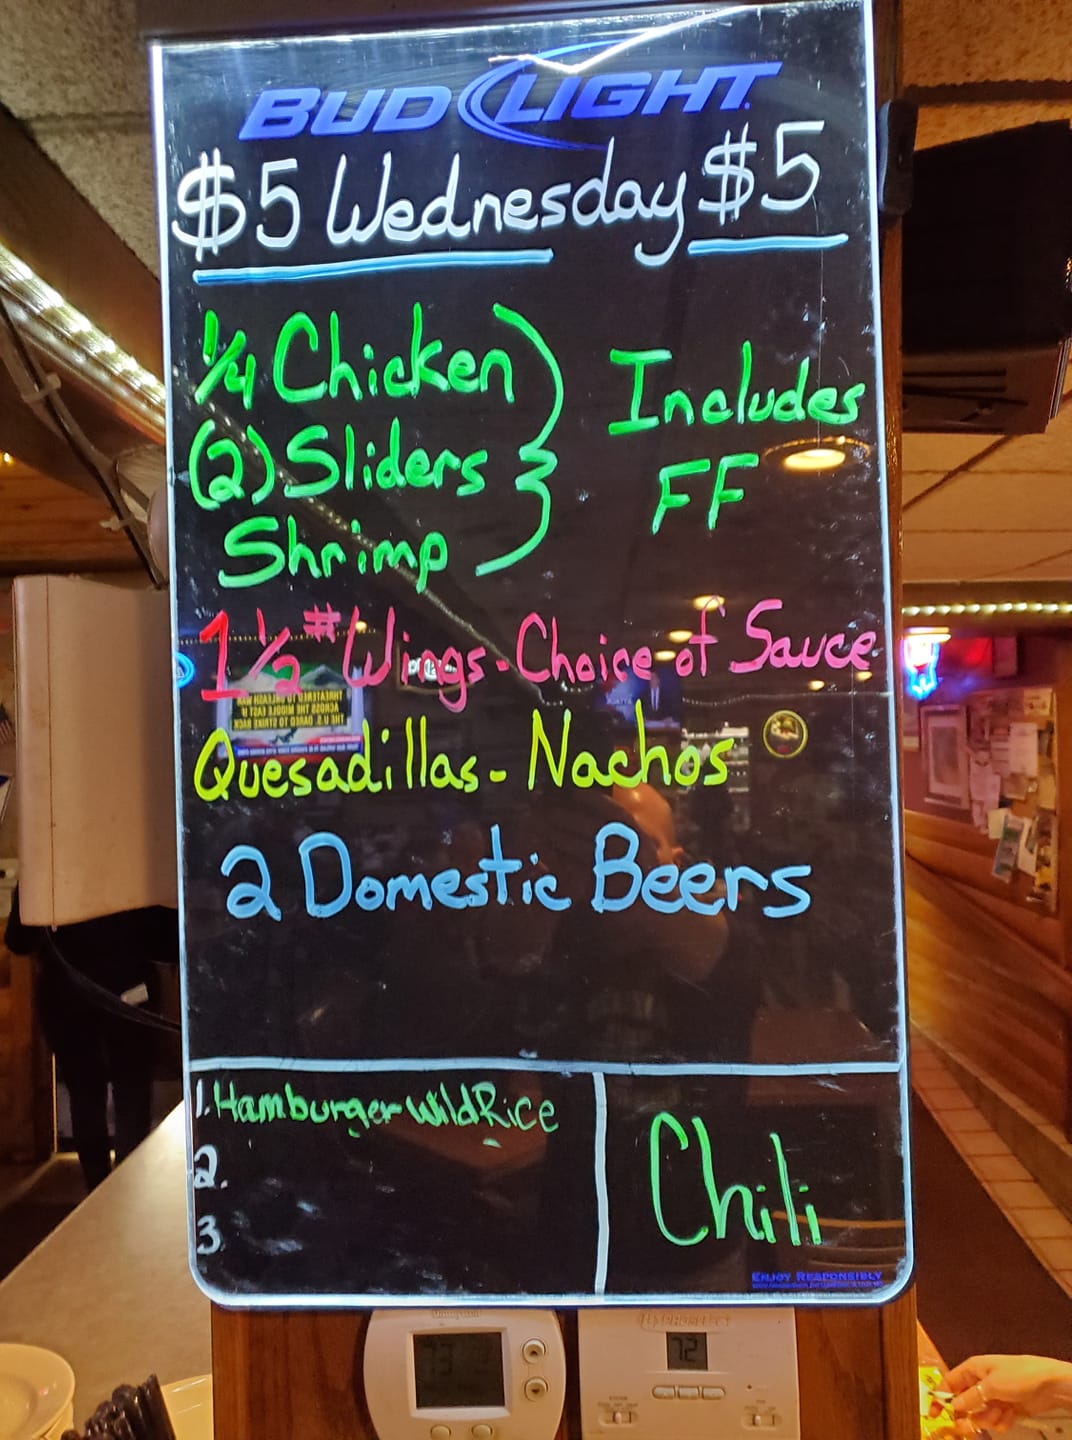 BUD LIGHT
$5 Wednesday $5
1/4 Chicken
(2) Sliders
Shrimp
Includes
FF
1 1/2 # Wings - Choice of Sauce
Quesadillas - Nachos
2 Domestic Beers
1. Hamburger Wild Rice
2.
3
Chili
ENJOY RESPONSIBLY
73
72